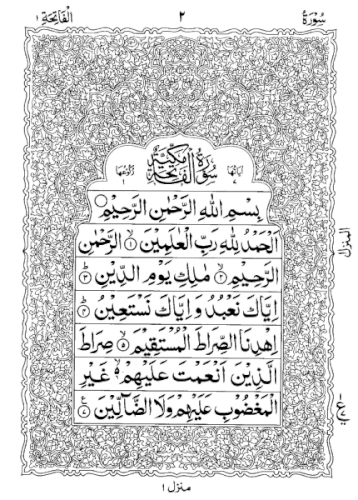 سُوْرَةُ ٢ اَلْفَاتِحَة ١
سُوْرَةُ الْفَاتِحَةِ مَكِّيَّةٌ
اٰيَاتُهَا ٧ رُكُوْعُهَا ١
بِسْمِ اللهِ الرَّحْمٰنِ الرَّحِيْمِ
اَلْحَمْدُ لِلّٰهِ رَبِّ الْعٰلَمِيْنَ ۙ ١ الرَّحْمٰنِ
الرَّحِيْمِ ۙ ٢ مٰلِكِ يَوْمِ الدِّيْنِ ؕ ٣
اِيَّاكَ نَعْبُدُ وَ اِيَّاكَ نَسْتَعِيْنُ ؕ ٤
اِهْدِنَا الصِّرَاطَ الْمُسْتَقِيْمَ ۙ ٥ صِرَاطَ
الَّذِيْنَ اَنْعَمْتَ عَلَيْهِمْ ۙ ٦ غَيْرِ
الْمَغْضُوْبِ عَلَيْهِمْ وَلَا الضَّآلِّيْنَ ٧
المنزل
ع
منزل ١